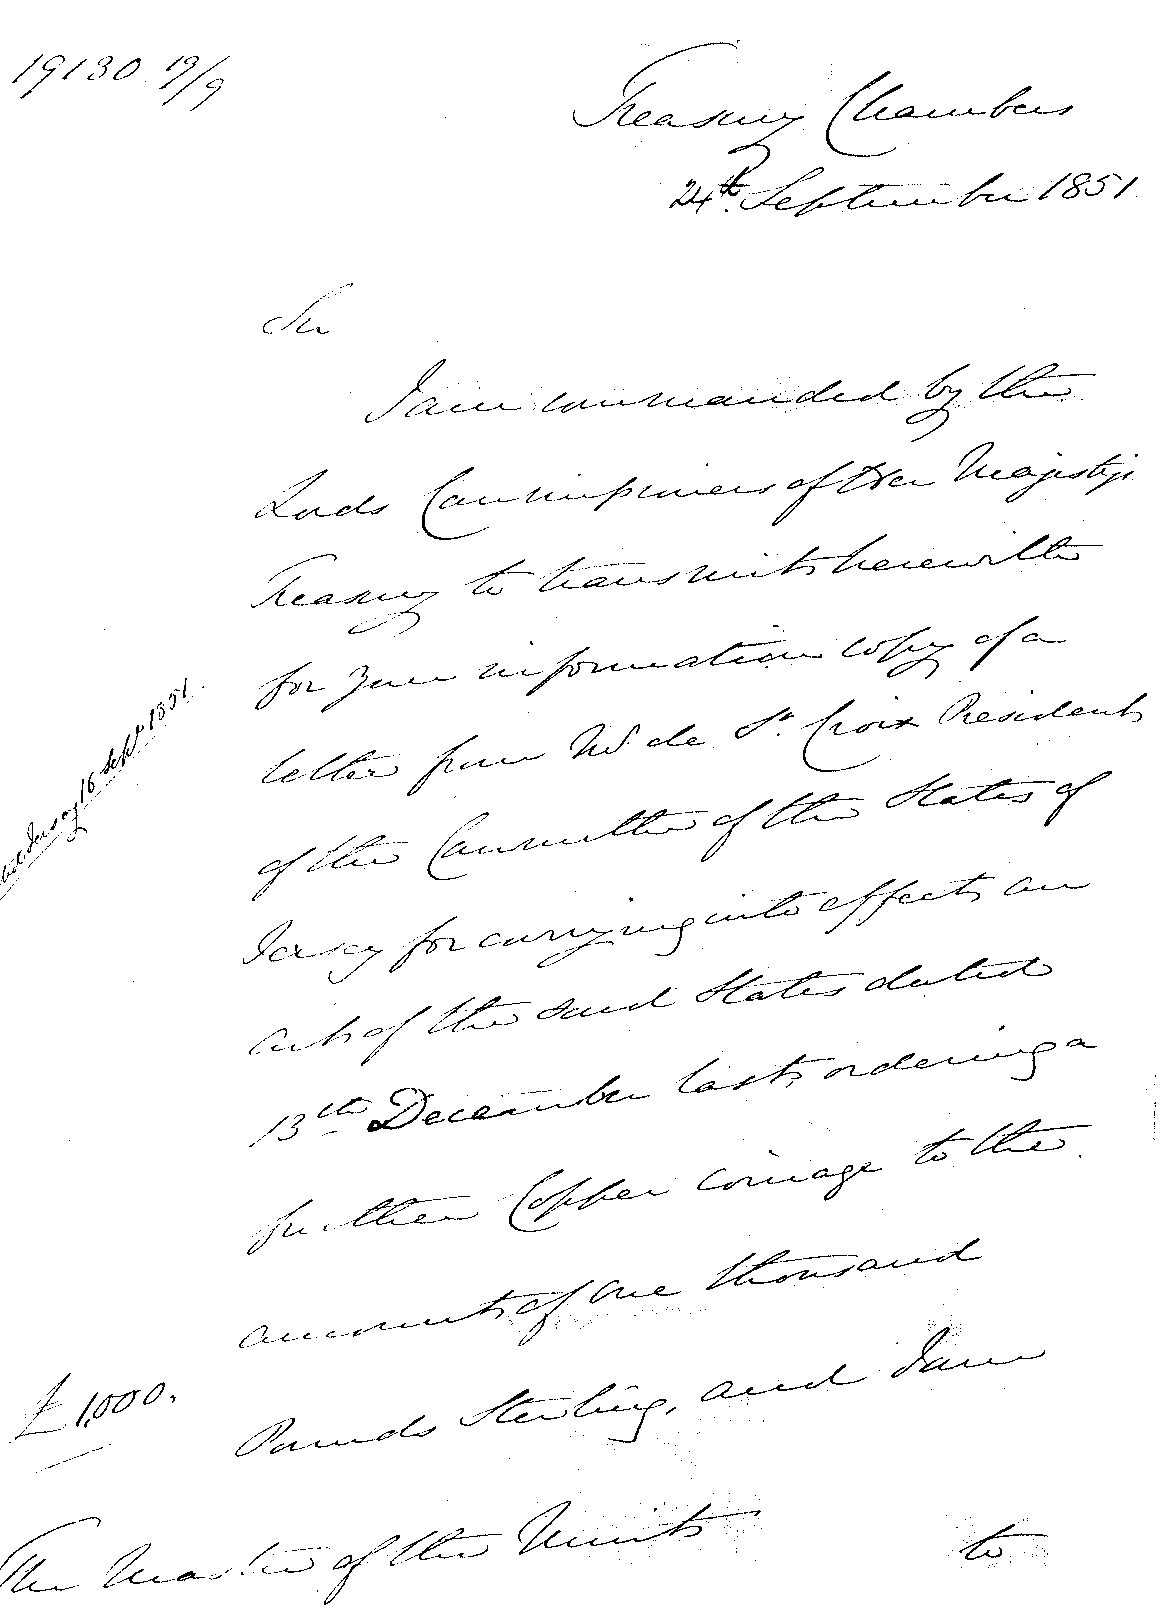 19130 19/9
Treasury Chambers
24th September 1851
Sir
I am commanded by the
Lords Commissioners of Her Majesty's
Treasury to transmit herewith
for your information copy of a
letter from Mr de St. Croix President
Jersey 16 Sept 1851
of the Committee of the States of
Jersey for carrying into effect an
act of the said States dated
13th December last, ordering a
further Copper coinage to the
amount of one thousand
£1,000.
Pounds Sterling, and I am
The Master of the Mint
to